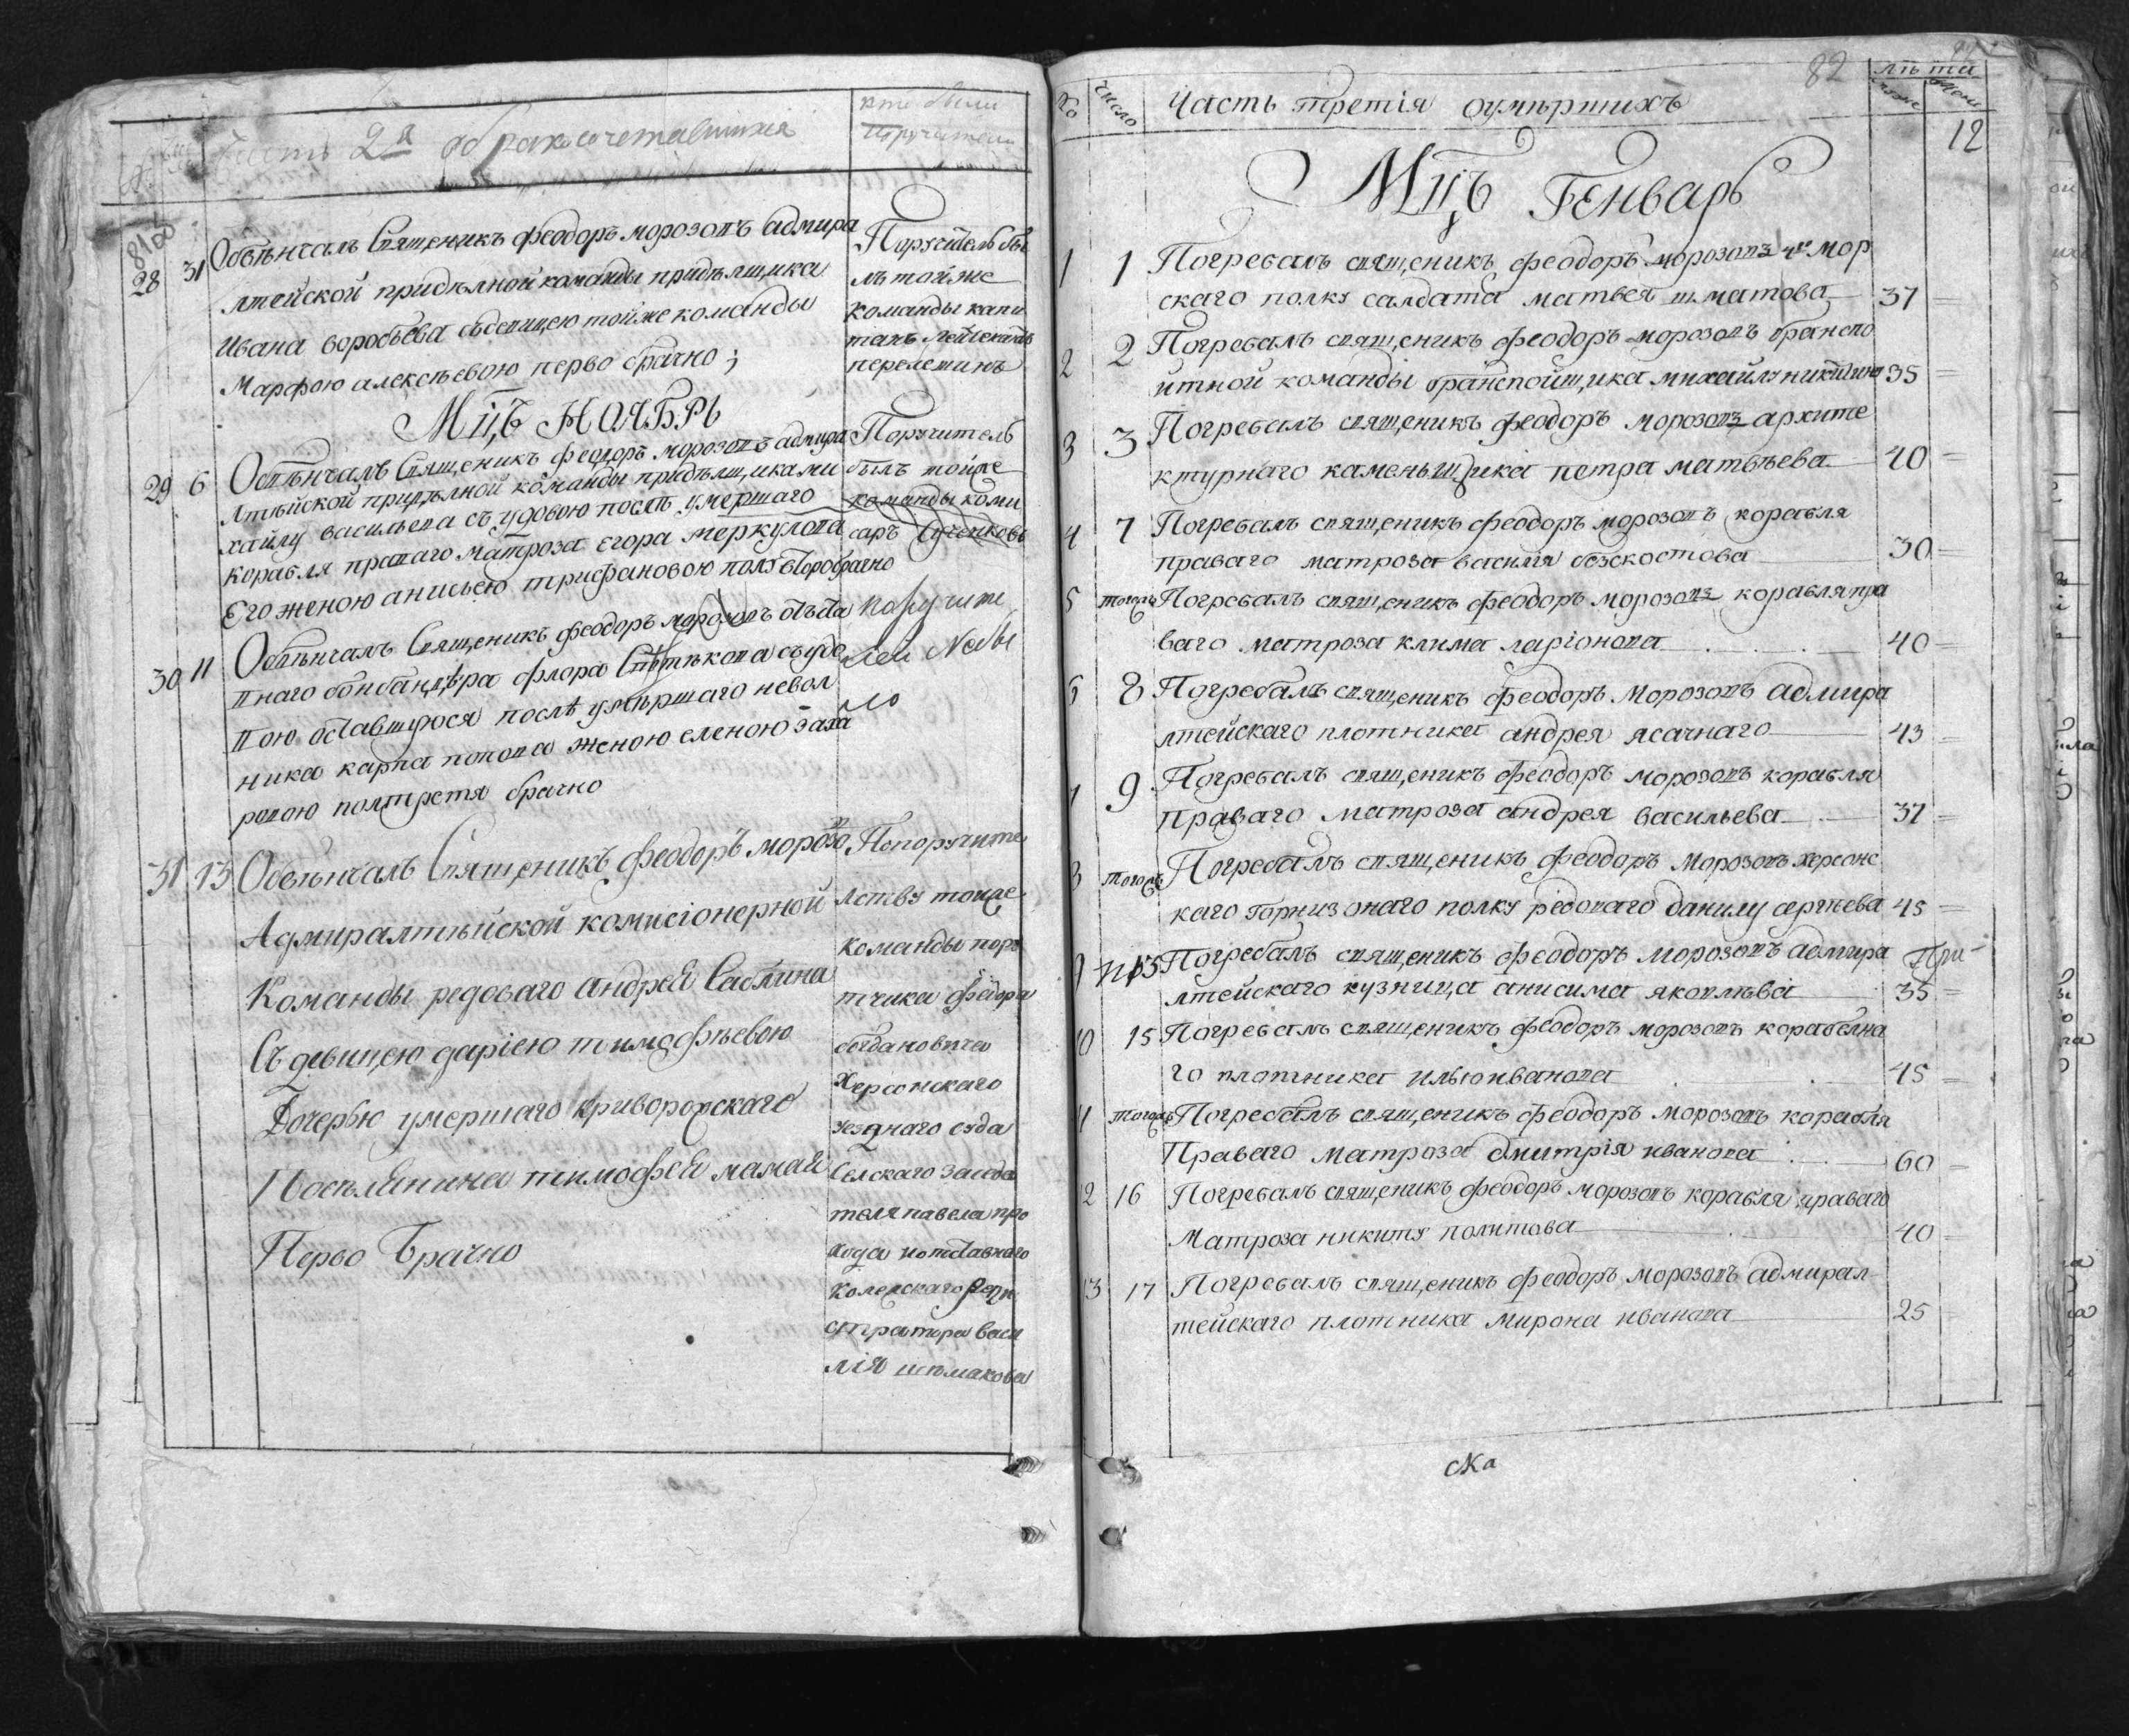 Часть 2я о бракосочетавшихся
кто были
поручители
81 об
28 31 Обвѣнчалъ Священикъ феодоръ морозовъ адмира
лтейской придѣлной команды придѣлщика
Ивана воробьева съ девицею тойже команды
Марфою алексѣевою перво брачно ;
Поручитель бы
лъ тойже
команды капи
танъ
перелешинъ
Мцъ НОЯБРЬ
29 6 Обвѣнчалъ Священикъ феодоръ морозовъ адмира
лтѣйской придѣлной команды придѣлщика ми
хайлу васильева съ удовою послѣ умершаго
корабля праваго матроза егора меркулова
Его женою анисьею трифановою полувторобрачно
Поручитель
былъ тойже
команды коми
саръ
30 11 Обвѣнчалъ Священикъ феодоръ морозовъ отъста
внаго бонбандѣра флора съ удо
вою оставшуюся послѣ умѣршаго невол
ника карпа попова женою еленою заха
ровою полтретя брачно
поручите
лей не бы
ло
31 13 Обвѣнчалъ Священикъ феодоръ морозо
Адмиралтѣйской комисіонерной
Команды редоваго андрея Саблина
Съ девицею даріею тимофѣевою
Дочерью умершаго криворожскаго
Посѣлянина тимофея мамая
Перво Брачно
По поручите
лству тойже
команды пору
тчика федора
богданович а
Херсонскаго
уезднаго суда
Селскаго заседа
теля павела про
хода и отставнаго
колежскаго реги
стратора васи
лія шемакова
82
№ Число Часть третія оумѣршихъ лѣта
муж жен
12
Мцъ Генварь
1 1 Погребалъ священикъ феодоръ морозовъ 4го мор
скаго полку салдата матвея шматова 37
2 2 Погребалъ священикъ феодоръ морозовъ транспо
ртной команды транспойщика михайлу никитина 35
3 3 Погребалъ священикъ феодоръ морозовъ архите
ктурнаго каменьщика петра матвѣева 40
4 7 Погребалъ священикъ феодоръ морозовъ корабля
праваго матроза василія безкостова 30
5 тогожъ Погребалъ священикъ феодоръ морозовъ корабля пра
ваго матроза клима ларіонова 40
6 8 Погребалъ священикъ феодоръ морозовъ адмира
лтейскаго плотника андрея ясачнаго 43
7 9 Погребалъ священикъ феодоръ морозовъ корабля
праваго матроза андрея васильева 37
8 тогожъ Погребалъ священикъ феодоръ морозовъ херсонс
каго горнизонаго полку редоваго данилу сергѣева 45
9 13 Погребалъ священикъ феодоръ морозовъ адмира
лтейскаго кузница анисима яковлѣва 35
10 15 Погребалъ священикъ феодоръ морозовъ корабелна
го плотника илью иванова 45
11 тогожъ Погребалъ священикъ феодоръ морозовъ корабля
Праваго матроза дмитрія иванова 60
12 16 Погребалъ священикъ феодоръ морозовъ корабля праваго
Матроза никиту политова 40
13 17 Погребалъ священикъ феодоръ морозовъ адмирал
тейскаго плотника мирона иванова 25
ска